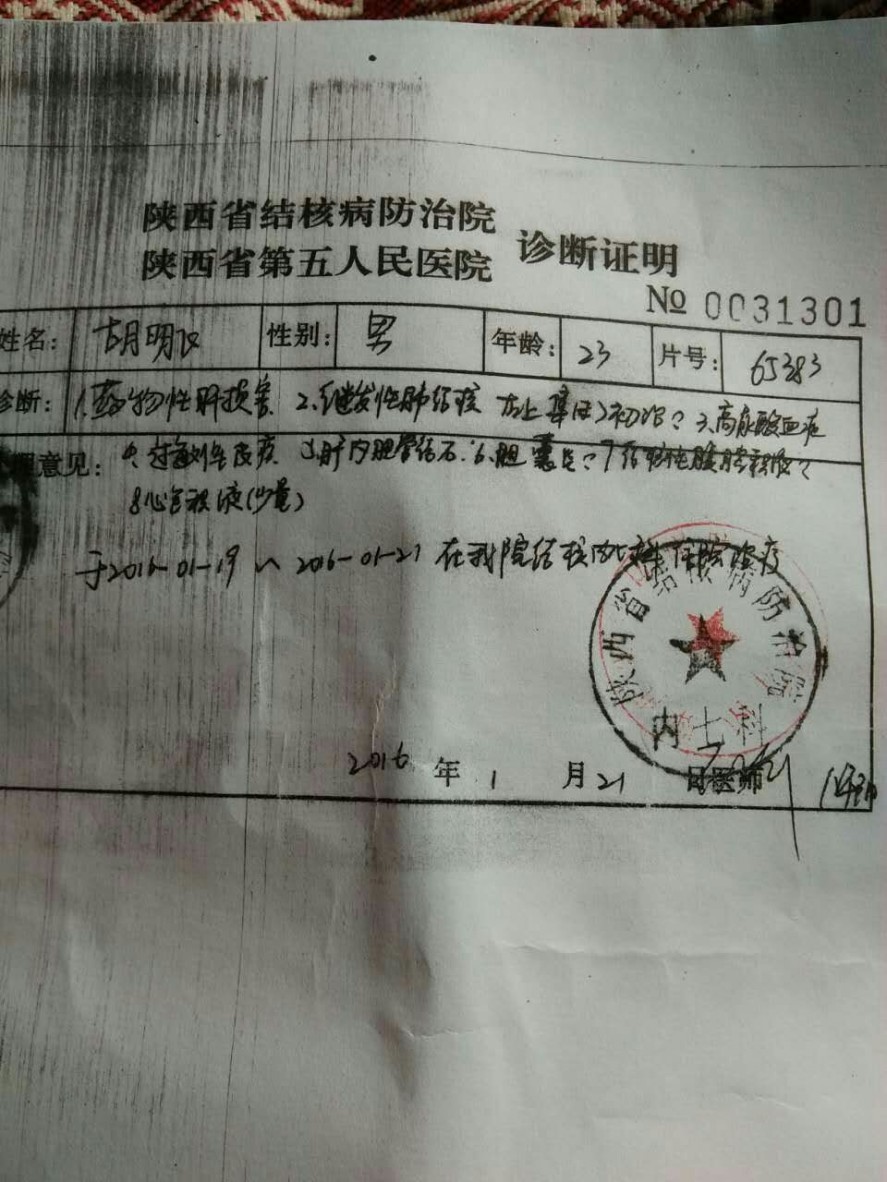 陕西省结核病防治院
陕西省第五人民医院 诊断证明
№ 0031301
姓名: 胡明 性别: 男 年龄: 23 片号: 65383
诊断: 1.药物性肝损害 2.继发性肺结核 左上 初治 3.高尿酸血症
意见: 4.过敏性皮疹 5.肝内胆管结石 6.胆 7.结核性
8.心包积液(少量)
于2016-01-19 ~ 2016-01-21 在我院结核内 科住院治疗
陕西省结核病防治院
内七科
2016 年 1 月 21 日 医师